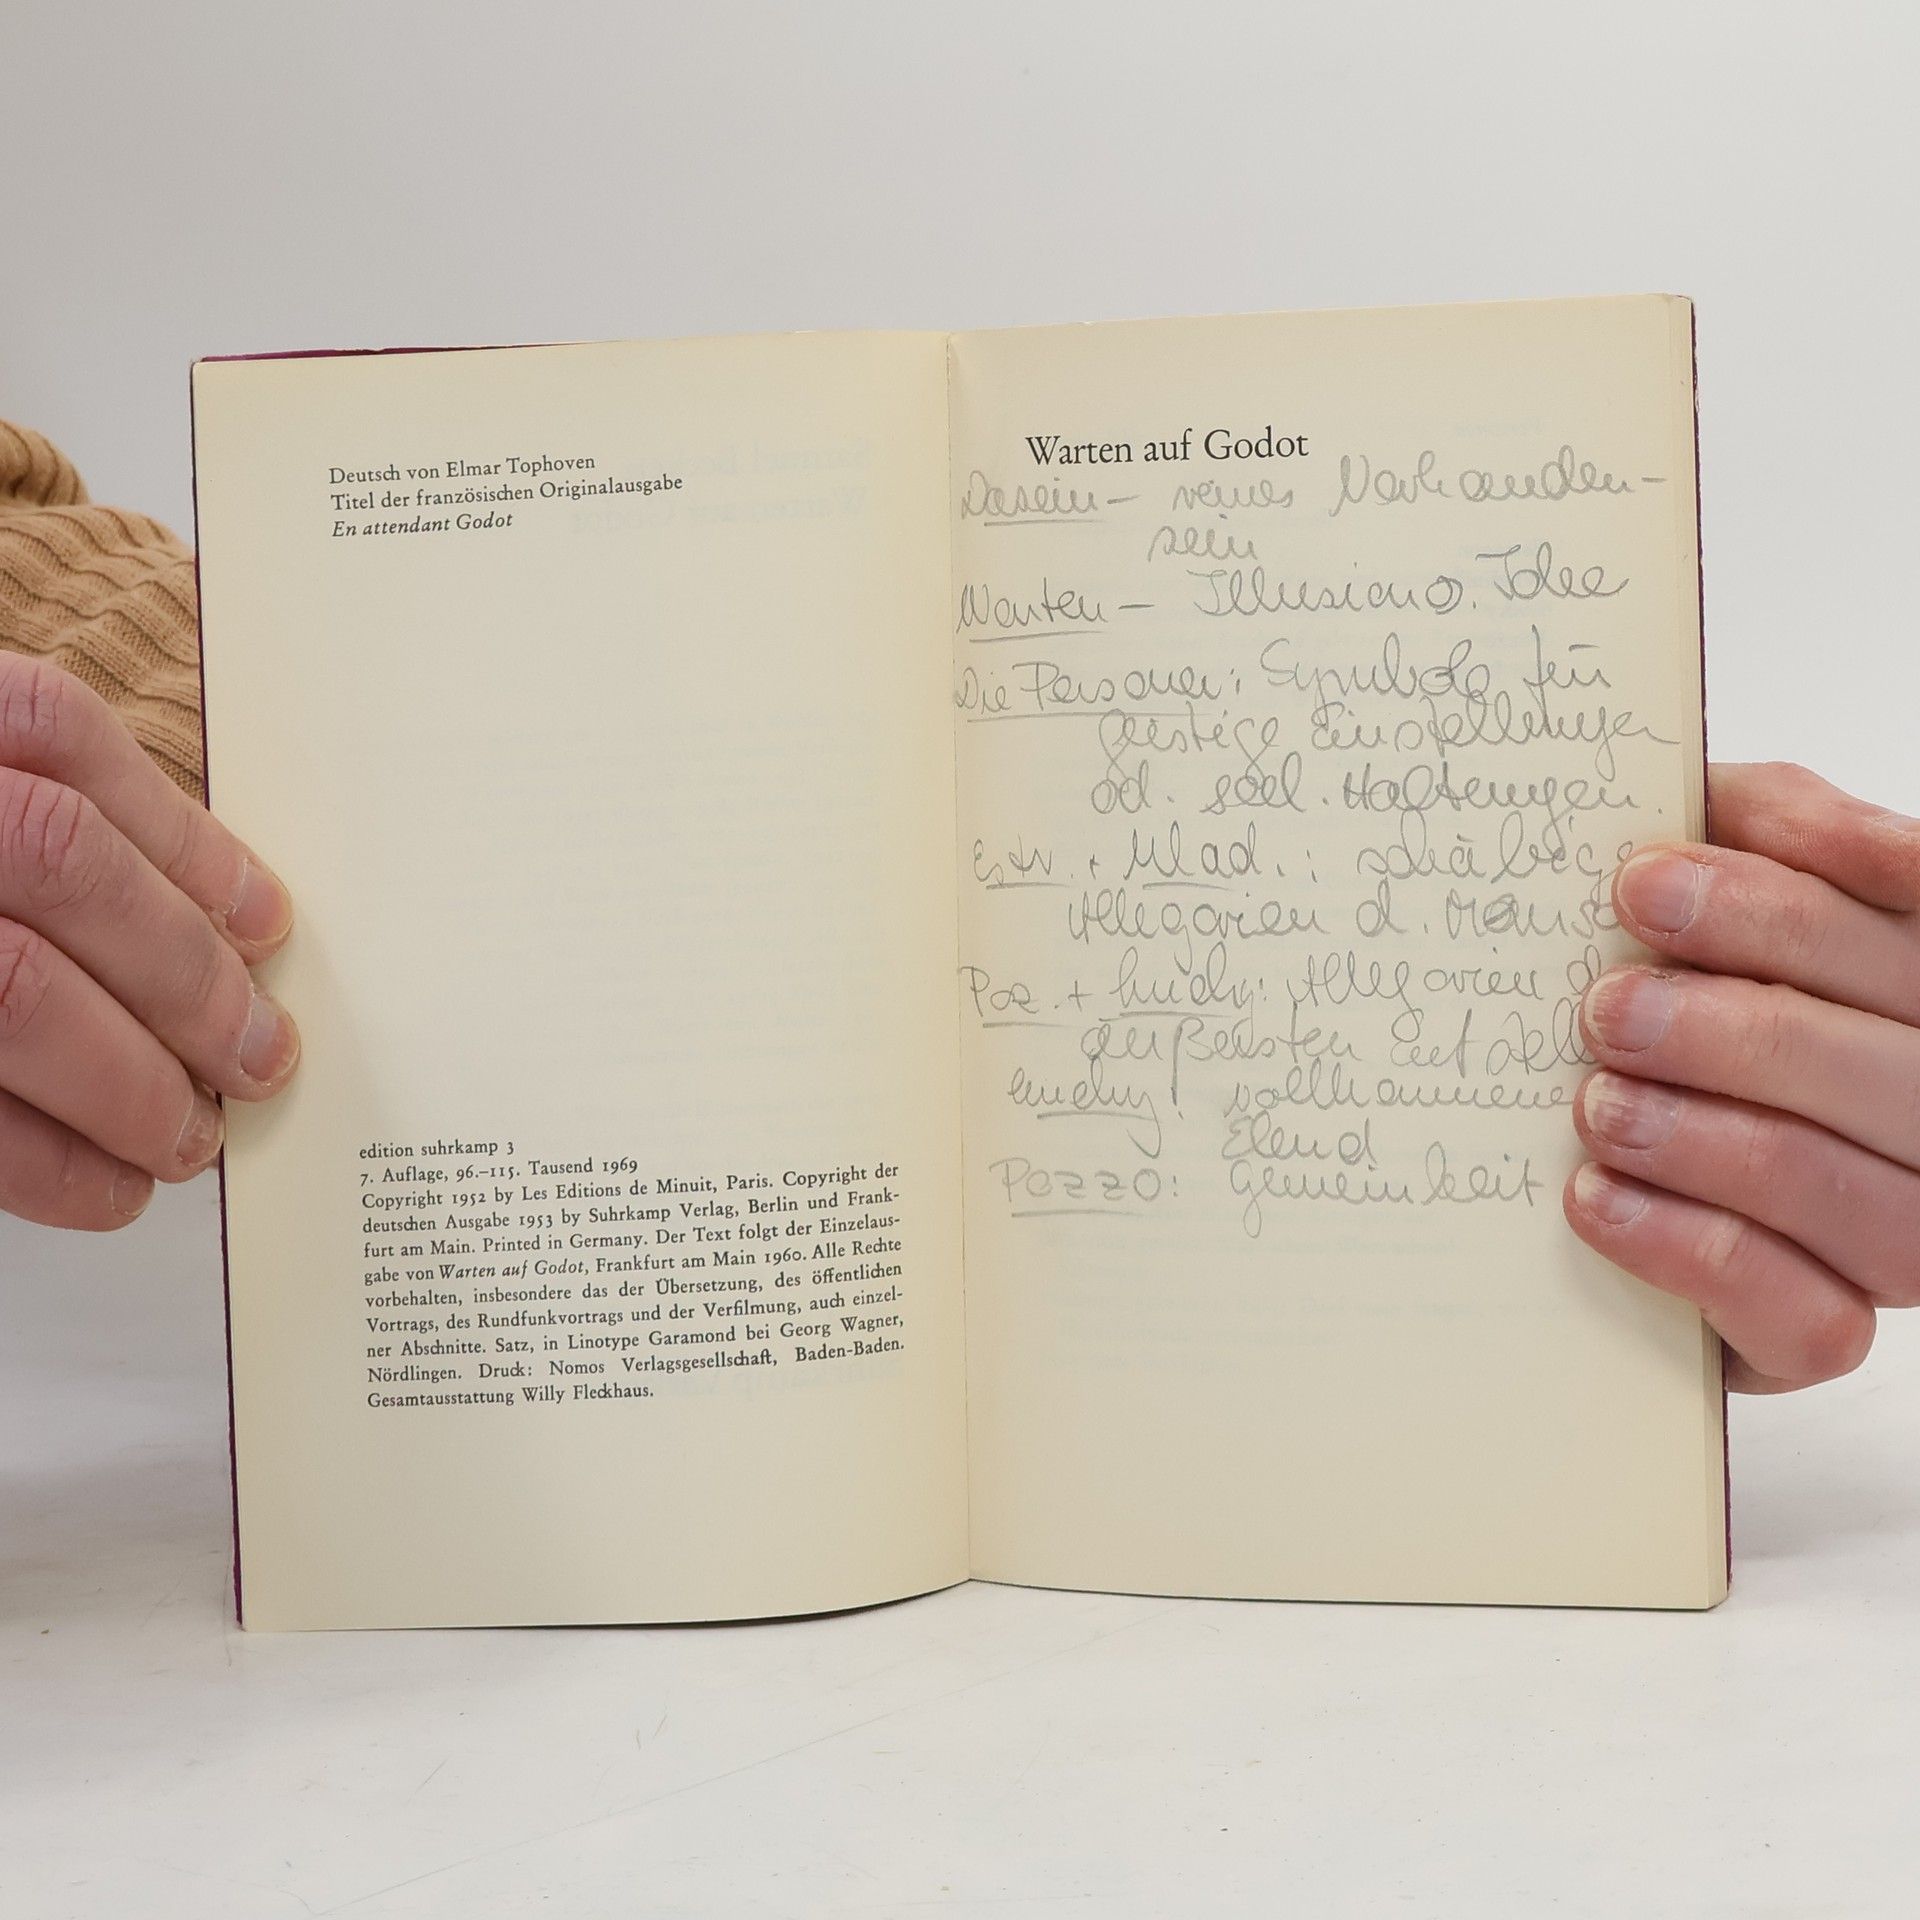 Deutsch von Elmar Tophoven
Titel der französischen Originalausgabe
En attendant Godot
edition suhrkamp 3
7. Auflage, 96.–115. Tausend 1969
Copyright 1952 by Les Editions de Minuit, Paris. Copyright der
deutschen Ausgabe 1953 by Suhrkamp Verlag, Berlin und Frank-
furt am Main. Printed in Germany. Der Text folgt der Einzelaus-
gabe von Warten auf Godot, Frankfurt am Main 1960. Alle Rechte
vorbehalten, insbesondere das der Übersetzung, des öffentlichen
Vortrags, des Rundfunkvortrags und der Verfilmung, auch einzel-
ner Abschnitte. Satz, in Linotype Garamond bei Georg Wagner,
Nördlingen. Druck: Nomos Verlagsgesellschaft, Baden-Baden.
Gesamtausstattung Willy Fleckhaus.
Warten auf Godot
Dasein – reines Vorhanden-
sein
Warten – Idee
Die Personen: Symbole für
geistige Einstellungen
od. seel. Haltungen.
Estr. + Wlad.: schäbige
Allegorien d.
Poz. + Lucky: Allegorien
äußersten
Lucky: vollkommene
Elend
Pozzo: Gemeinheit